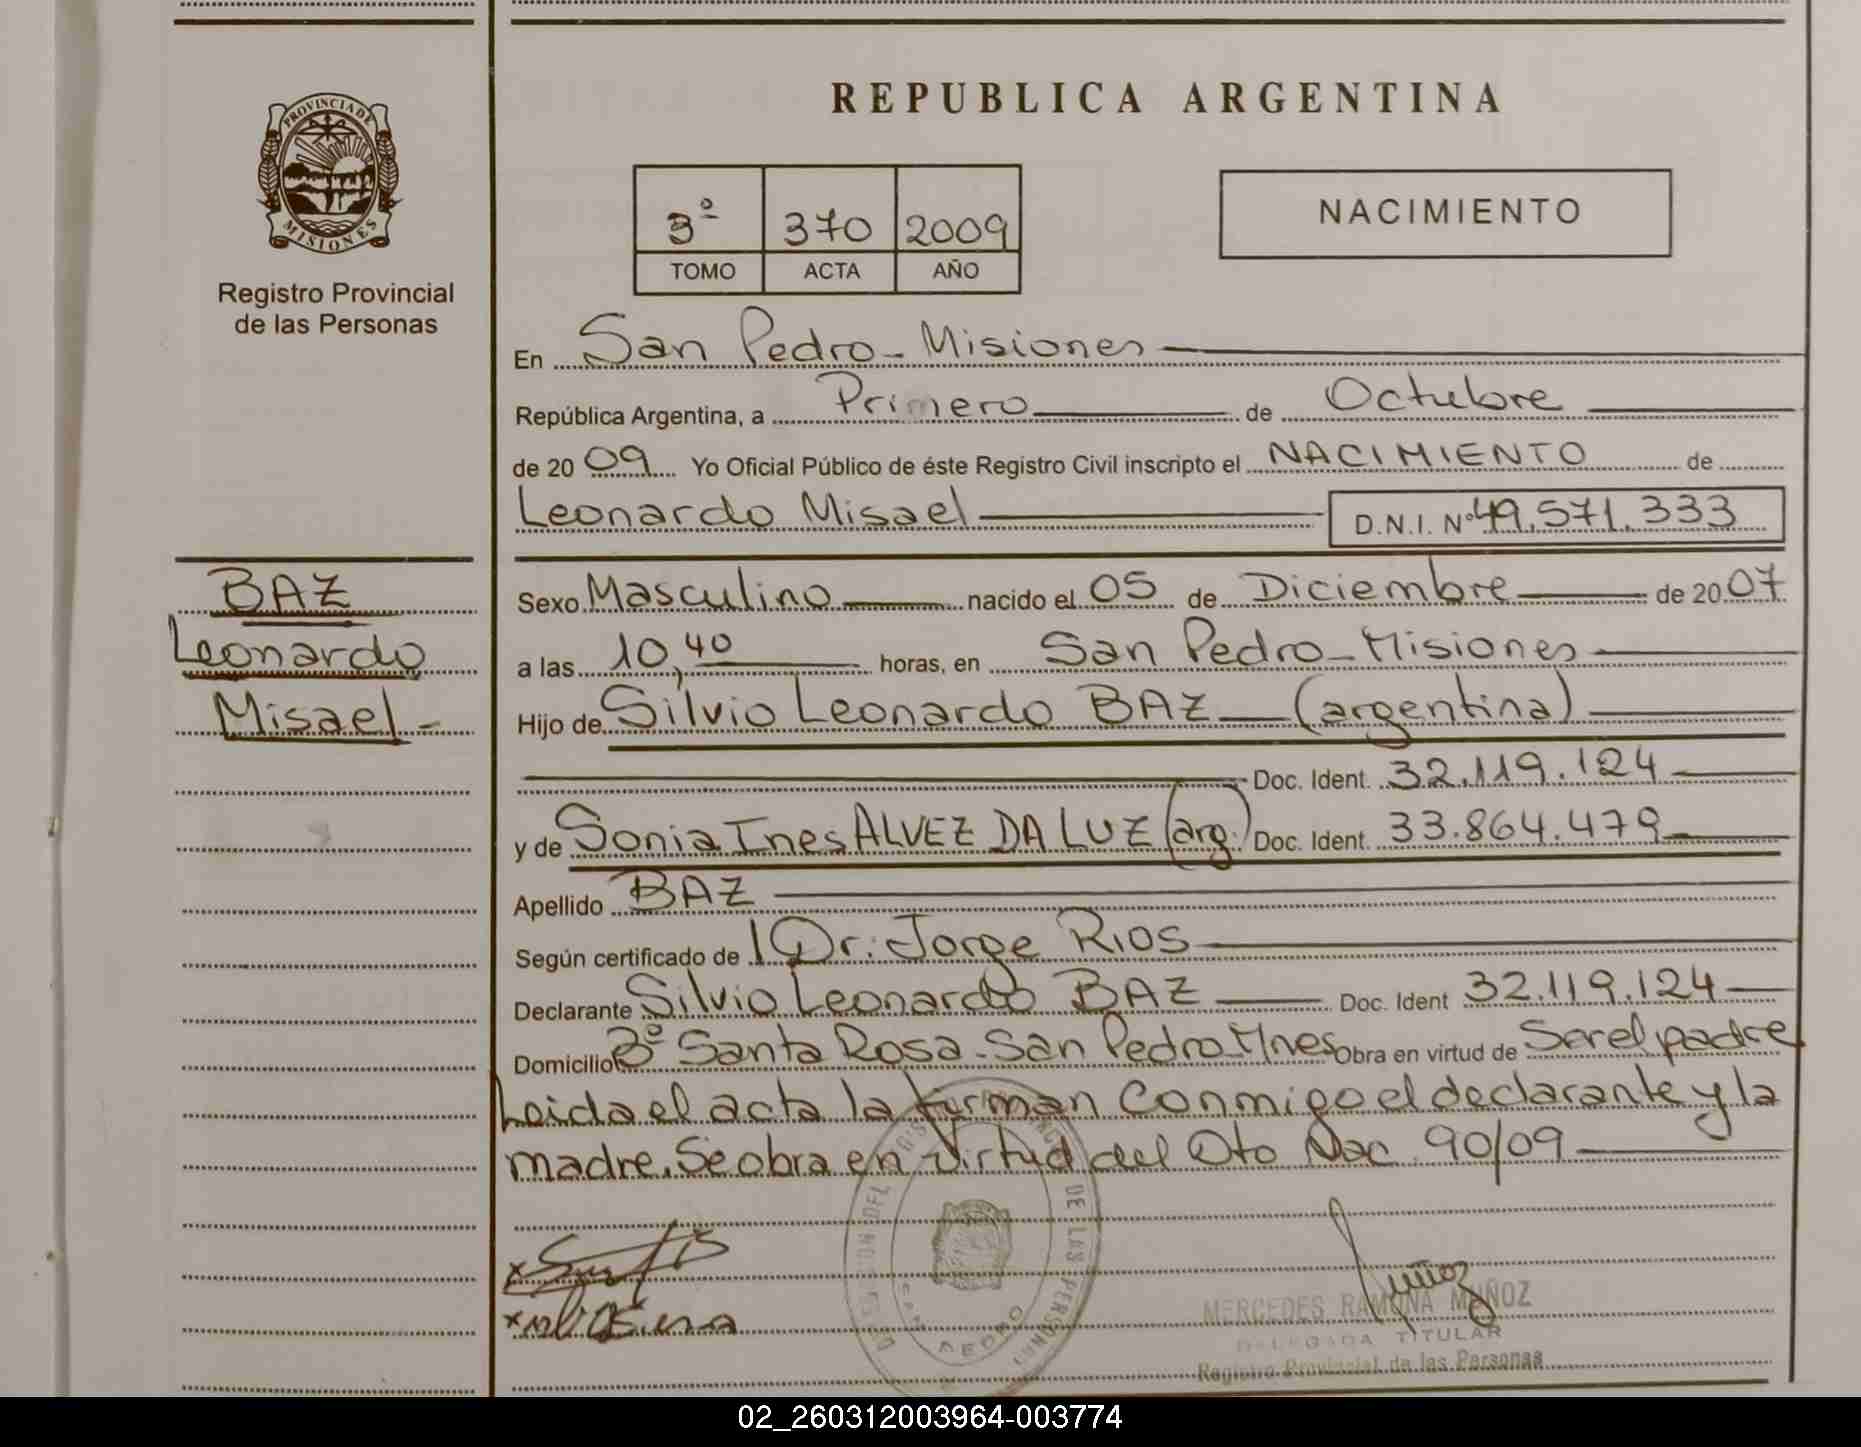 PROVINCIA DE
MISIONES
Registro Provincial
de las Personas
BAZ
Leonardo
Misael -
REPUBLICA ARGENTINA
3º 370 2009
TOMO ACTA AÑO
NACIMIENTO
En San Pedro - Misiones
República Argentina, a Primero de Octubre
de 2009 Yo Oficial Público de éste Registro Civil inscripto el NACIMIENTO de
Leonardo Misael D.N.I. Nº 49.571.333
Sexo Masculino nacido el 05 de Diciembre de 2007
a las 10,40 horas, en San Pedro - Misiones
Hijo de Silvio Leonardo BAZ (argentina)
Doc. Ident. 32.119.124
y de Sonia Ines ALVEZ DA LUZ (arg.) Doc. Ident. 33.864.479
Apellido BAZ
Según certificado de Dr. Jorge RIOS
Declarante Silvio Leonardo BAZ Doc. Ident 32.119.124
Domicilio Bº Santa Rosa - San Pedro - Mnes Obra en virtud de Ser el padre
Leida el acta la firman conmigo el declarante y la
madre. Se obra en virtud del Dto Nac. 90/09
DE LAS PERSONAS
SAN PEDRO
Muñoz
MERCEDES RAMONA MUÑOZ
DELEGADA TITULAR
Registro Provincial de las Personas
02_260312003964-003774